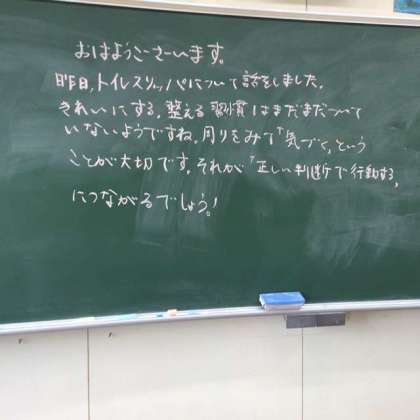 おはようございます。
昨日,トイレスリッパについて話をしました。
きれいにする,整える習慣はまだまだついて
いないようですね。周りをみて「気づく」という
ことが大切です。それが「正しい判断で行動する」
につながるでしょう!